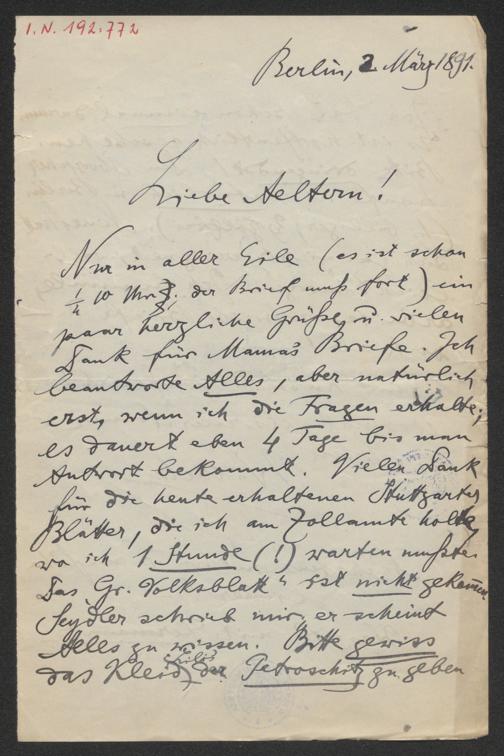 I. N. 192.772
Berlin, 2 März 1891.
Liebe Aeltern!
Nur in aller Eile (es ist schon
1/4 10 Uhr, der Brief muß fort) ein
paar herzliche Grüße u. vielen
Dank für Mama's Briefe. Ich
beantworte Alles, aber natürlich
erst, wenn ich die Fragen erhalte;
es dauert eben 4 Tage bis man
Antwort bekommt. Vielen Dank
für die heute erhaltenen Stuttgarter
Blätter, die ich am Zollamte holte,
wo ich 1 Stunde (!) warten mußte.
Das Gr. Volksblatt" ist nicht gekommen.
Seydler schrieb mir, er scheint
Alles zu wissen. Bitte gewiss
das Kleid der Petroschitz zu geben